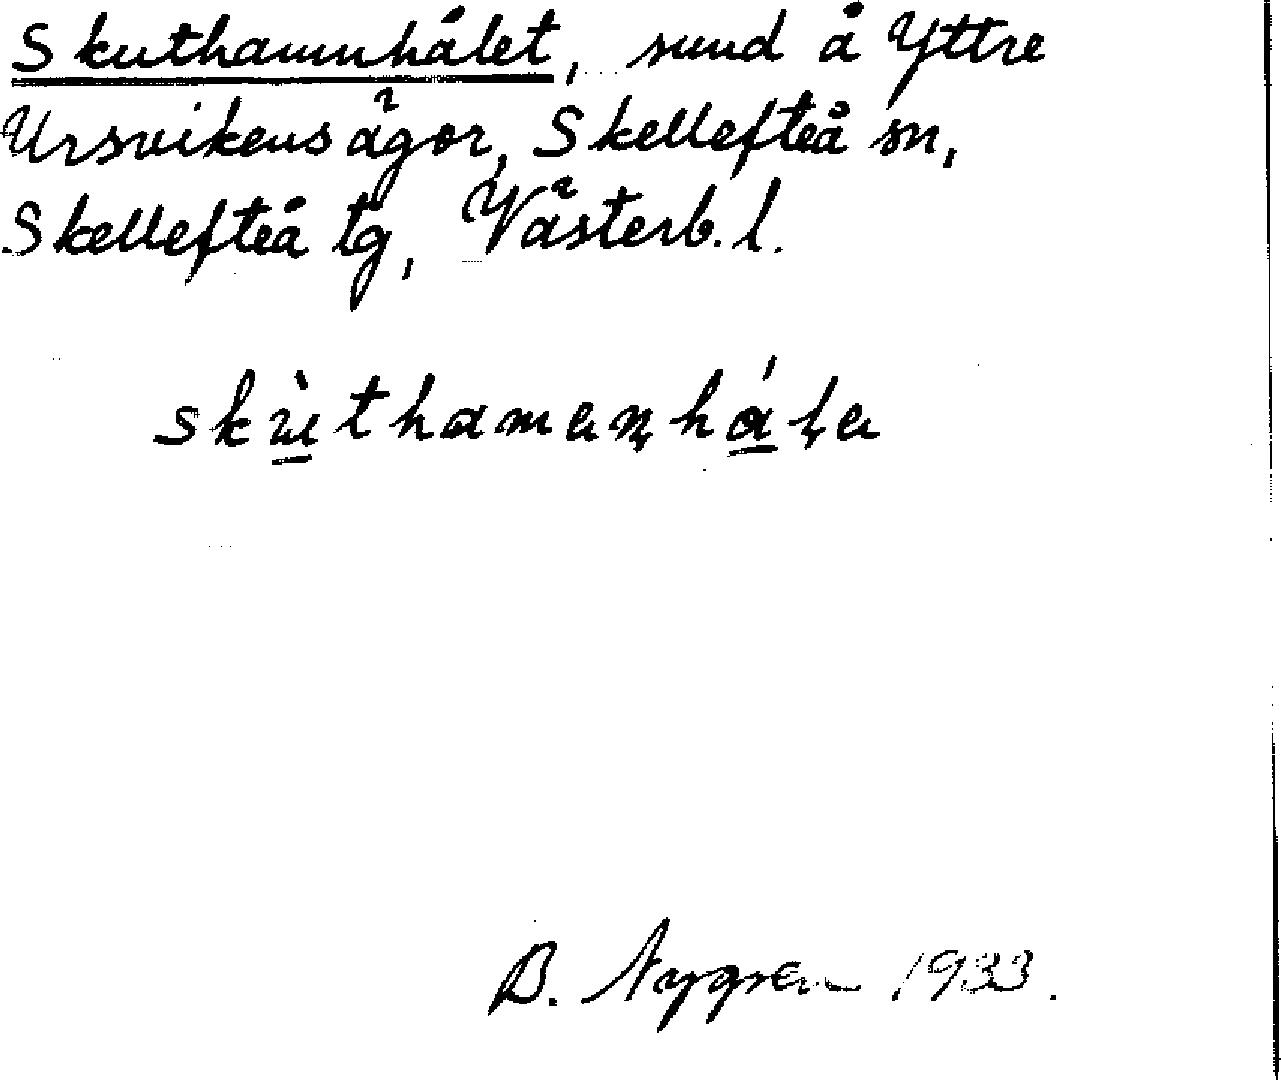 Skuthamnhålet, sund å Yttre
Ursvikens ägor, Skellefteå sn,
Skellefteå tg, Västerb. l.
B. Nygren 1933.